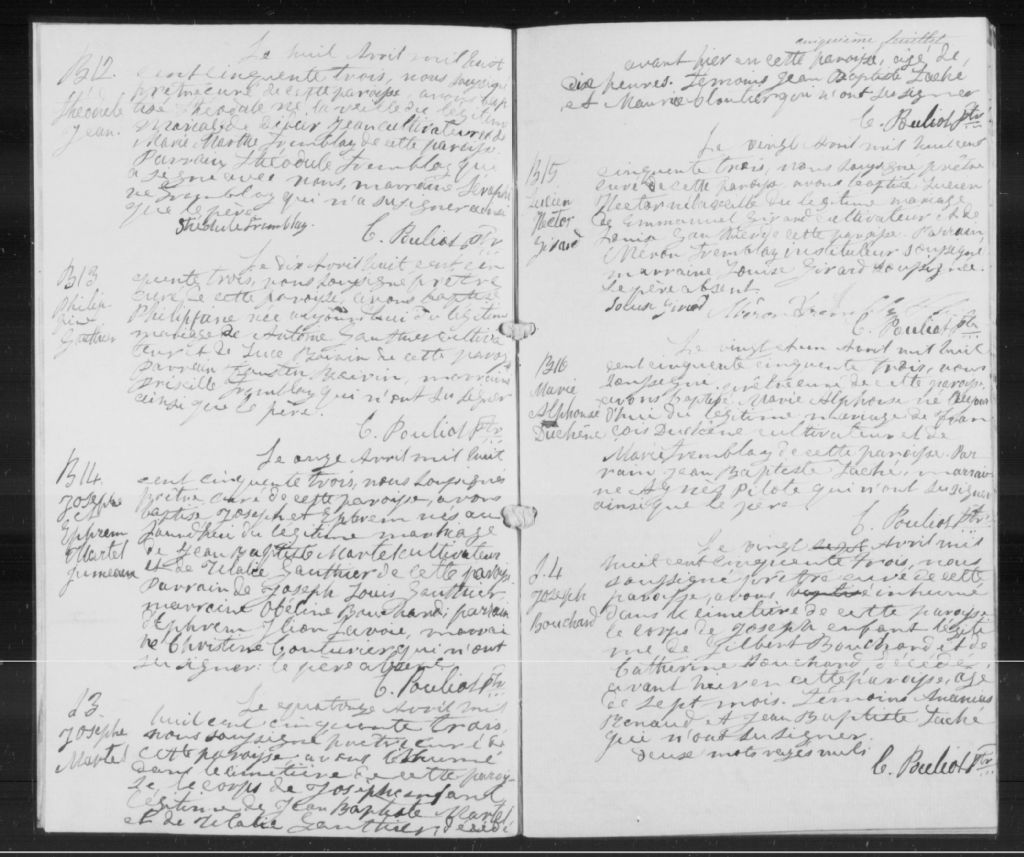 B12.
Théodule
Jean.
Le huit Avril mil huit
cent cinquante trois, nous soussigné
prêtre curé de cette paroisse, avons bap
tisé Théodule né la veille du légitime
mariage de Jean cultivateur et de
Marie Marthe Tremblay de cette paroisse.
Parrain Théodule Tremblay qui
a signé avec nous, marraine Séraphi
ne Tremblay qui n'a su signer ainsi
que le père.
Théodule Tremblay.
C. Pouliot Ptr
B13
Philip
Gauthier
Le dix Avril huit cent cin
quante trois, nous soussigné prêtre
curé de cette paroisse, avons baptisé
née aujourd'hui du légitime
mariage de Antoine Gauthier cultiva
teur et de Luce Boivin de cette paroisse
Parrain Faustin Boivin, marraine
Priscille Tremblay qui n'ont su signer
ainsi que le père.
C. Pouliot Ptr
B14
Joseph
et
Ephrem
Martel
jumeaux
Le onze Avril mil huit
cent cinquante trois, nous soussignés
prêtre curé de cette paroisse, avons
baptisé Joseph et Ephrem nés au
jourd'hui du légitime mariage
de Jean Baptiste Martel cultivateur
et de Ulalie Gauthier de cette paroisse.
Parrain de Joseph Louis Gauthier,
marraine Obéline Bouchard, parrain
d'Ephrem Lavoie, marrai
ne Christine Couturier qui n'ont
su signer: le père absent.
C. Pouliot Ptr
S3
Joseph
Martel
Le quatorze Avril mil
huit cent cinquante trois
nous soussigné prêtre curé de
cette paroisse avons inhumé
dans le cimetière de cette parois
se, le corps de Joseph enfant
légitime de Jean Baptiste Martel
et de Ulalie Gauthier, décédé
avant hier en cette paroisse, agé de
dix heures. Témoins Jean Baptiste Taché
et Maurice Cloutier qui n'ont su signer
C. Pouliot Ptr
B15
Lucien
Hector
Girard
Le vingt Avril mil huit cent
cinquante trois, nous soussigné prêtre
curé de cette paroisse, avons baptisé Lucien
Hector né la veille du légitime mariage
de Emmanuel Girard cultivateur et de
Gauthier de cette paroisse. Parrain,
Méron Tremblay instituteur soussigné
marraine Louise Girard soussignée.
Le père absent.
Louise Girard
C. Pouliot Ptr
B16
Marie
Alphonse
Duchêne
Le vingt Avril mil huit
cent cinquante cinquante trois, nous
soussigné, prêtre curé de cette paroisse,
avons baptisé Marie Alphonse né aujour
d'hui du légitime mariage de Fran
çois Duchêne cultivateur et de
Marie Tremblay de cette paroisse. Par
rain Jean Baptiste Taché, marrai
ne Agnès Pilote qui n'ont su signer
ainsi que le père.
C. Pouliot Ptr
S.4
Joseph
Bouchard
Le vingt sept Avril mil
huit cent cinquante trois, nous
soussigné prêtre curé de cette
paroisse, avons baptisé inhumé
dans le cimetière de cette paroisse
le corps de Joseph enfant légiti
me de Gilbert Bouchard et de
Catherine Bouchard, décédé
avant hier en cette paroisse, agé
de sept mois. Témoins Ananias
Renaud et Jean Baptiste Taché
qui n'ont su signer.
deux mots rayés nuls
C. Pouliot Ptr